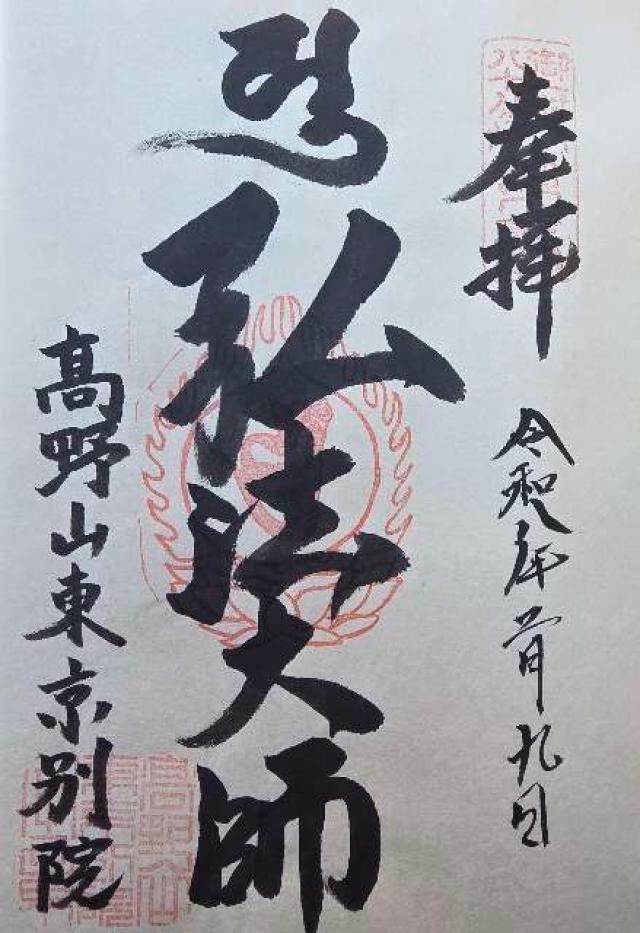 奉拝
令和八年二月九日
弘法大師
高野山東京別院